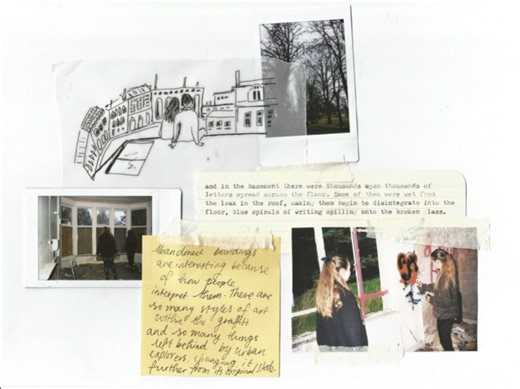 and in the basement there were thousands upon thousands of
letters spread across the floor. Some of them were wet from
the leak in the roof, making them begin to disintegrate into the
floor, blue spirals of writing spilling onto the broken glass,
Abandoned buildings
are interesting because
of how people
interpret them. There are
so many styles of art
within the graffiti
and so many things
left behind by urban
explorers, changing it
further from its original state